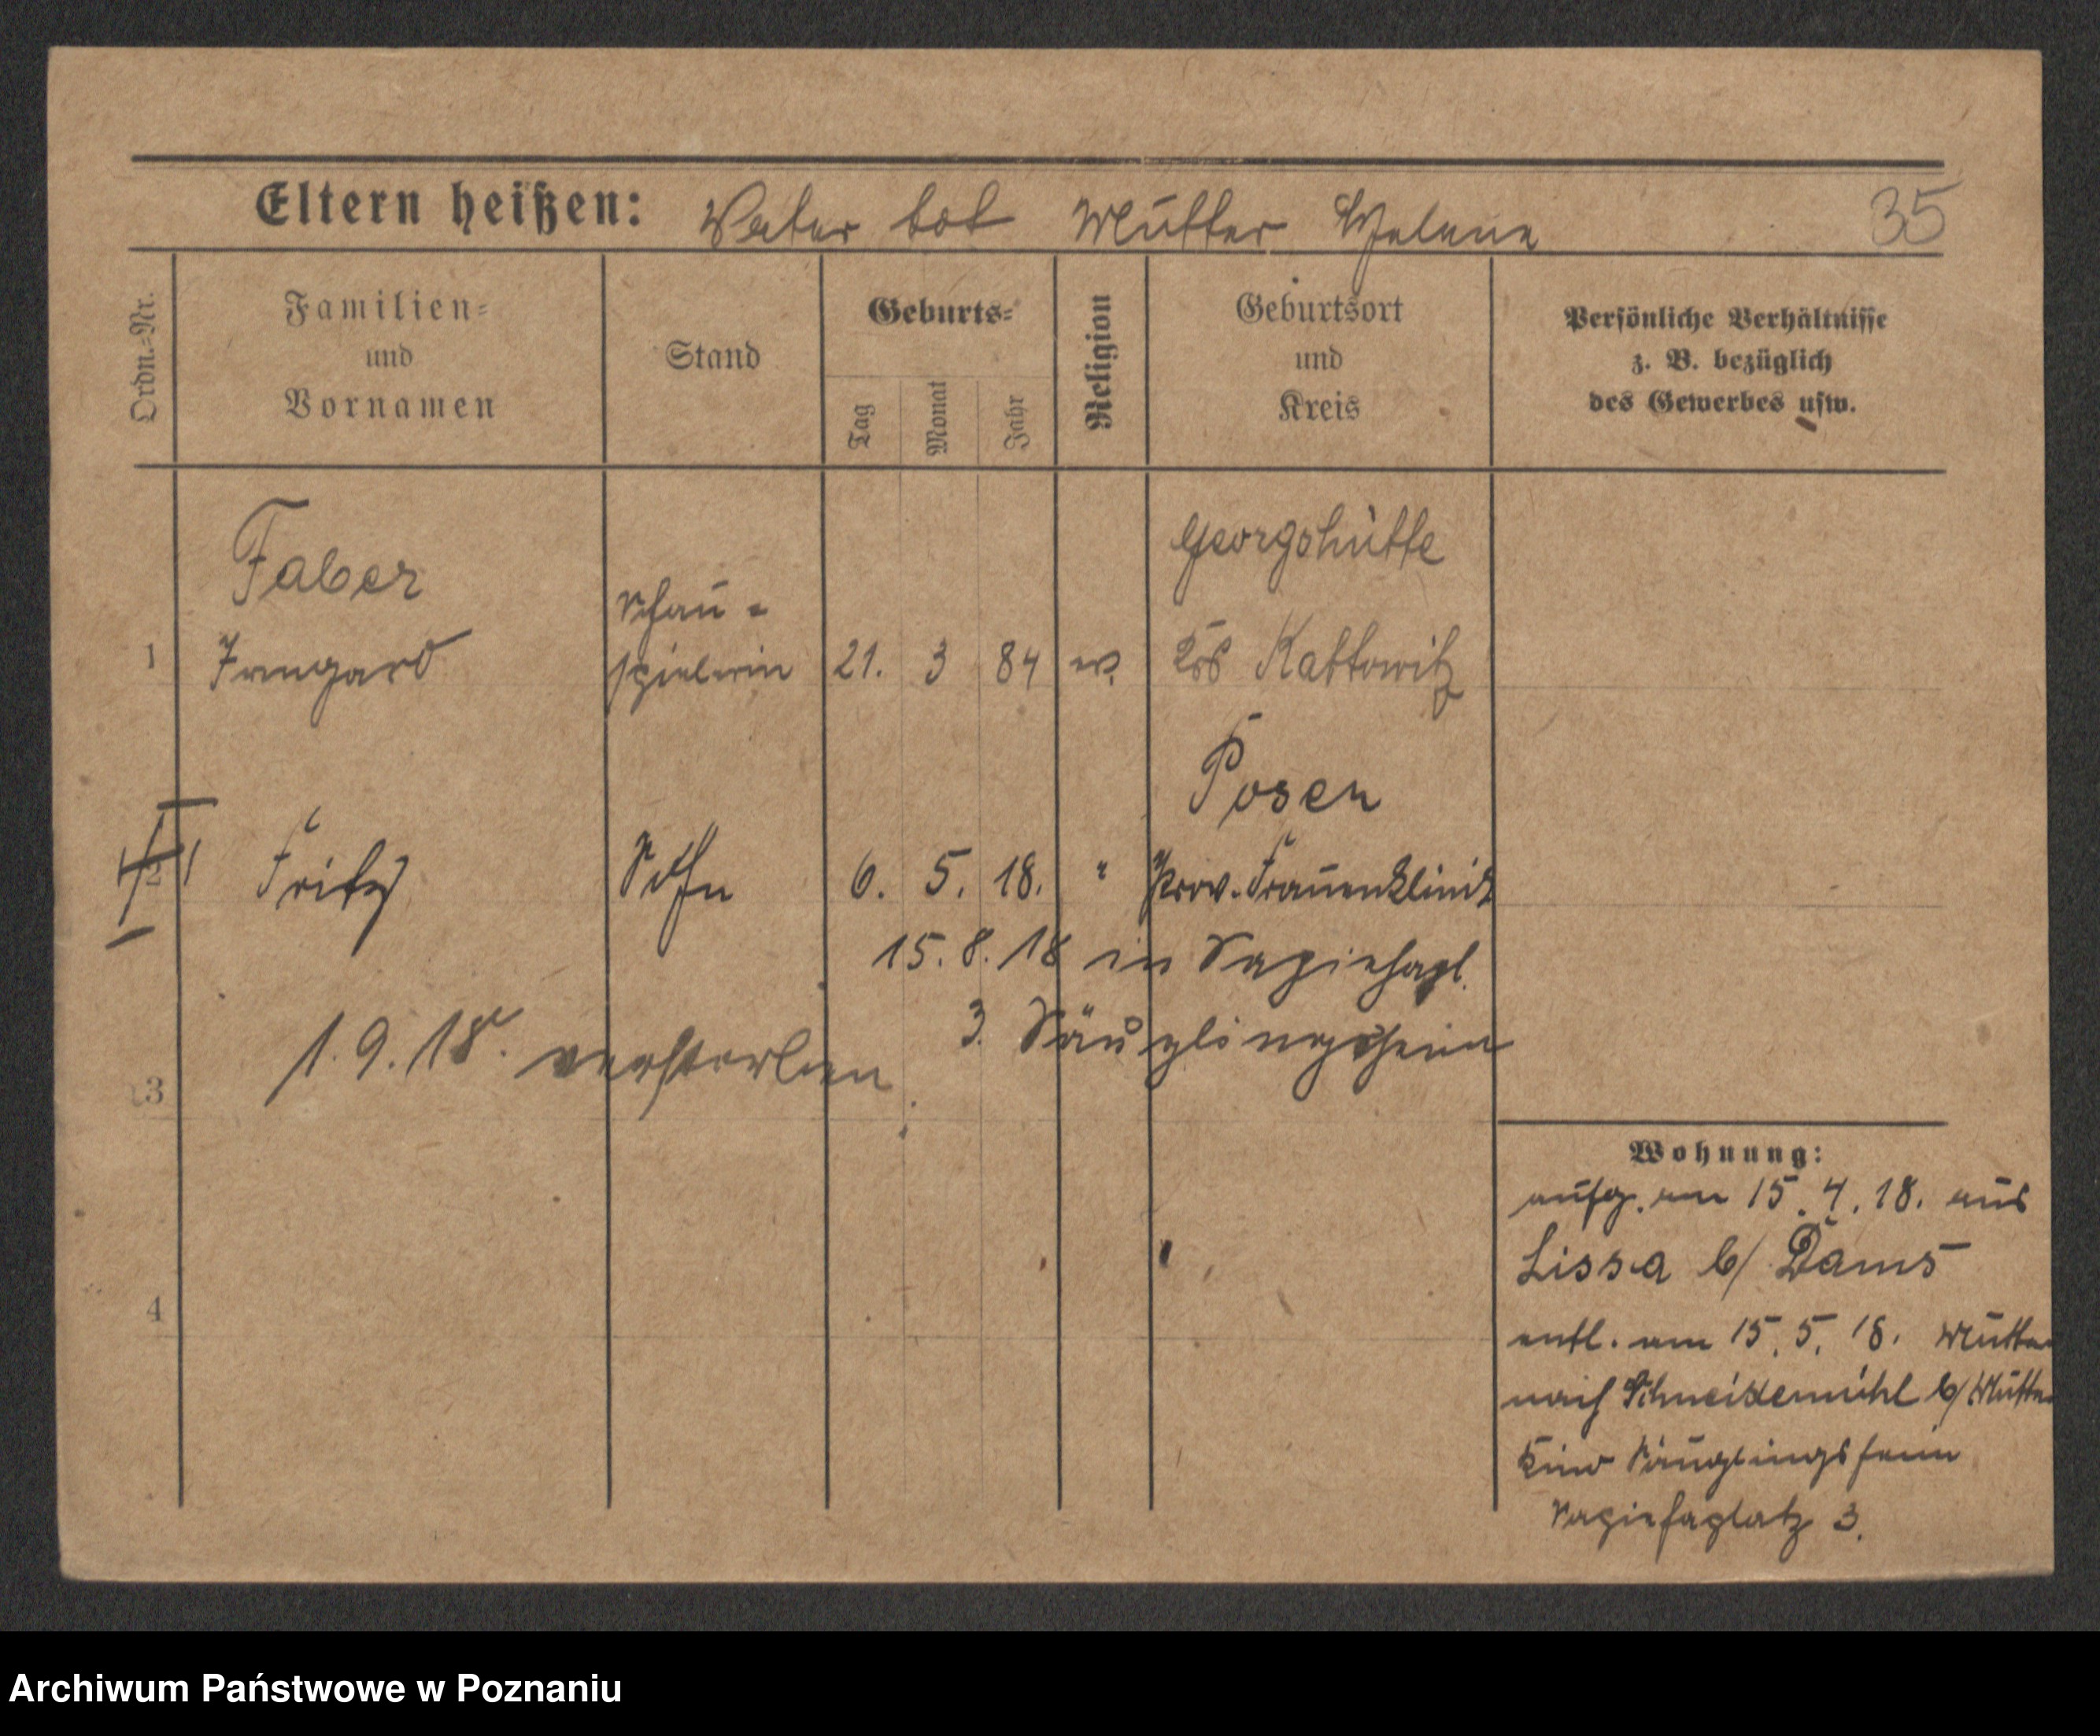 Eltern heißen: Vater tot Mutter Helene 35
Ordn.-Nr.
Familien-
und
Vornamen
Stand
Geburts-
Tag
Monat
Jahr
Religion
Geburtsort
und
Kreis
Persönliche Verhältnisse
z. B. bezüglich
des Gewerbes usw.
Faber
Georgshütte
Schau-
1 Irmgard spielerin 21. 3 84 ev. Kattowitz
Posen
2 Fritz Sohn 6. 5. 18. " Prov. Frauenklinik
15. 8. 18 in Sapiehapl.
3. Säuglingsheim
1. 9. 18. verstorben
3
Wohnung:
aufg. am 15. 4. 18. aus
Lissa b/ Dams
4
entl. am 15. 5. 18. Mutter
nach Schneidemühl b/ Mutter
Kind Säuglingsheim
Sapiehaplatz 3.
Archiwum Państwowe w Poznaniu